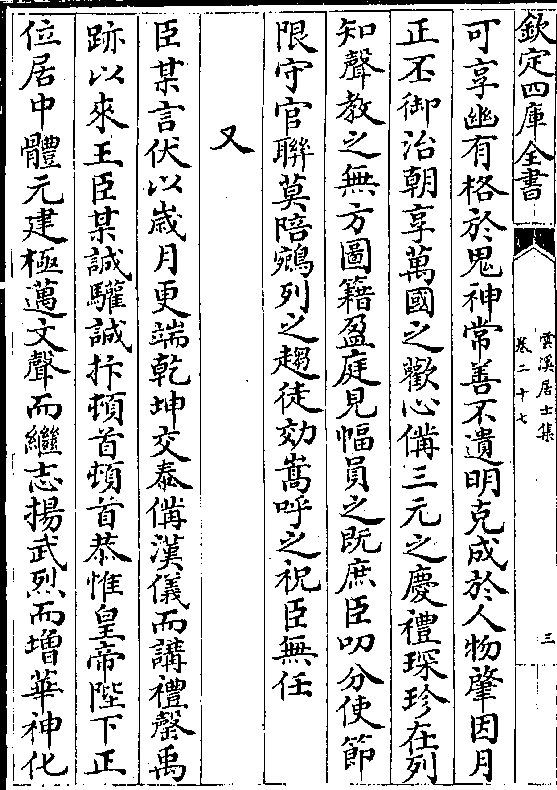 欽定四庫全書
雲溪居士集
卷二十七
三
可享幽有格於鬼神常善不遺明克成於人物肇因月
正丕御治朝享萬國之歡心備三元之慶禮琛珍在列
知聲教之無方圖籍盈庭見幅員之既庶臣叨分使節
限守官聯莫陪鵷列之趨徒効嵩呼之祝臣無任
又
臣某言伏以歲月更端乾坤交泰備漢儀而講禮罄禹
跡以來王臣某誠驩誠抃頓首頓首恭惟皇帝陛下正
位居中體元建極邁文聲而繼志揚武烈而增華神化